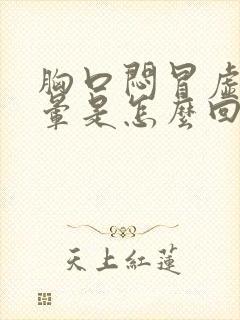 胸口悶冒虛
暈是怎麼回
天上紅蓮